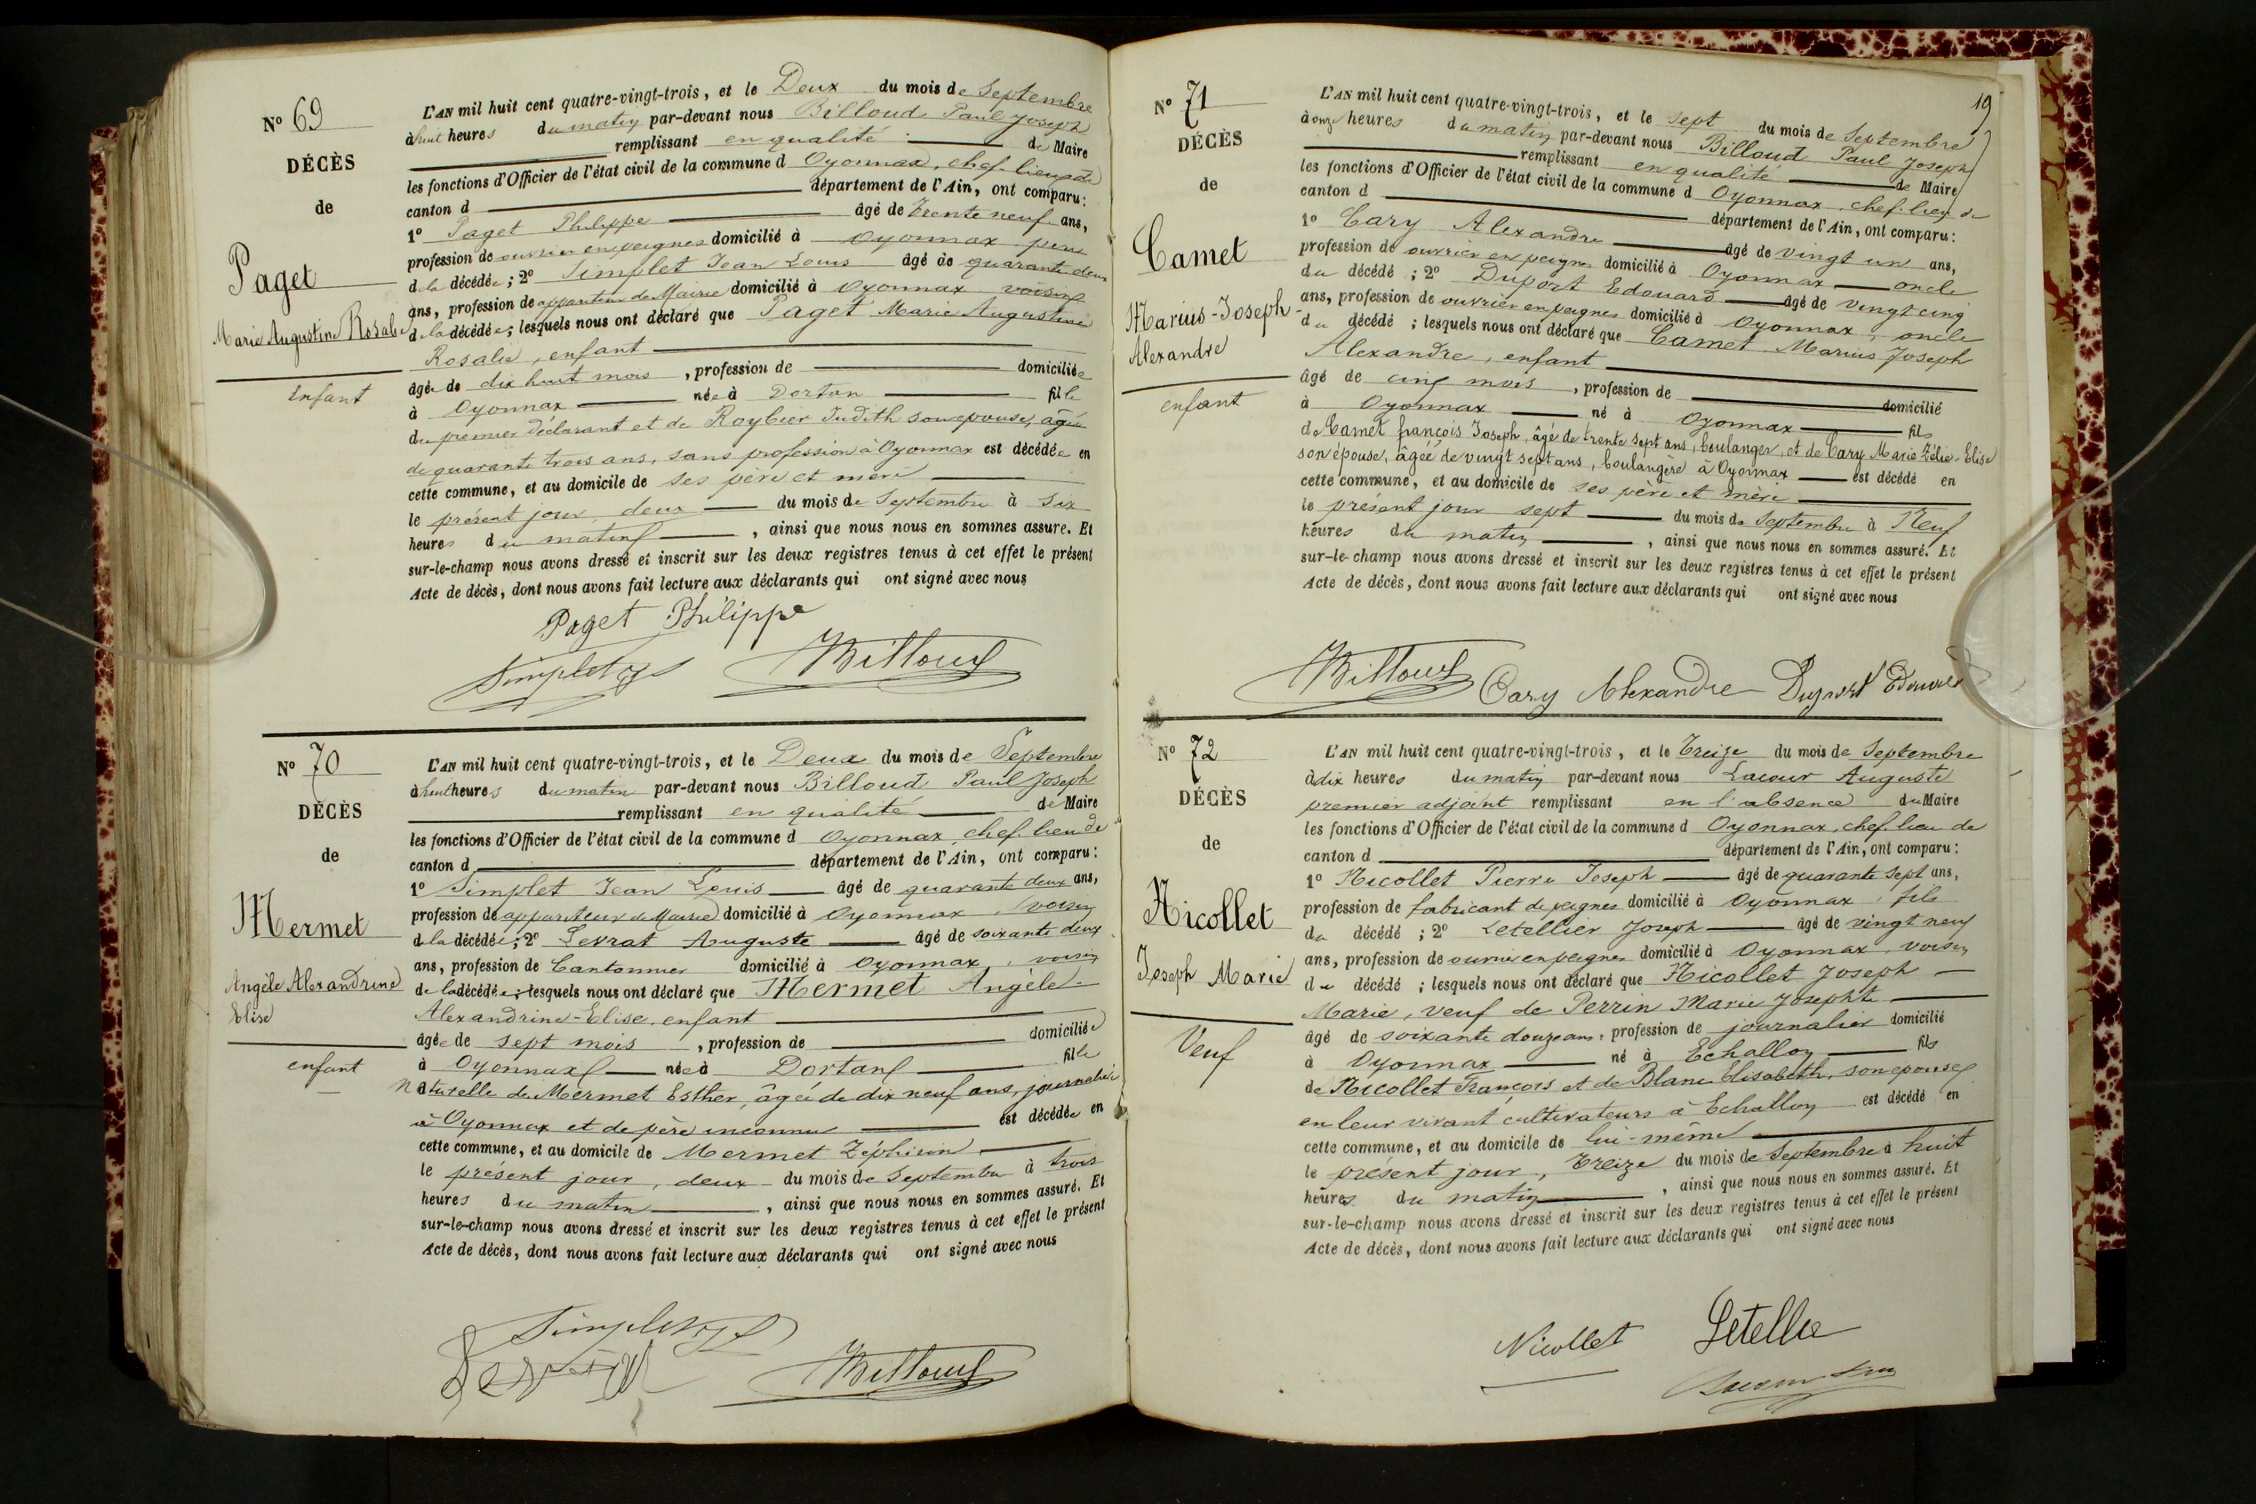 N° 69
DÉCÈS
de
Paget
Marie Augustine Rosalie
Enfant
L'AN mil huit cent quatre-vingt-trois, et le Deux du mois de Septembre
à huit heures du matin par-devant nous Billoud Paul Joseph
remplissant en qualité de Maire
les fonctions d'Officier de l'état civil de la commune d Oyonnax, chef-lieu de
canton d département de l'Ain, ont comparu:
1° Paget Philippe âgé de trente neuf ans,
profession de ouvrier en peignes domicilié à Oyonnax père
de la décédée; 2° Simplet Jean Louis âgé de quarante deux
ans, profession de appariteur de Mairie domicilié à Oyonnax voisin
de la décédée; lesquels nous ont déclaré que Paget Marie Augustine
Rosalie, enfant
âgée de dix huit mois, profession de domiciliée
à Oyonnax née à Dortan fille
du premier déclarant et de Roybier Judith son épouse, âgée
de quarante trois ans, sans profession à Oyonnax est décédée en
cette commune, et au domicile de ses père et mère
le présent jour, deux du mois de Septembre à six
heures du matin, ainsi que nous nous en sommes assuré. Et
sur-le-champ nous avons dressé et inscrit sur les deux registres tenus à cet effet le présent
Acte de décès, dont nous avons fait lecture aux déclarants qui ont signé avec nous
Paget Philippe
Simplet Billoud
N° 70
DÉCÈS
de
Mermet
Angèle Alexandrine
Elise
enfant
L'AN mil huit cent quatre-vingt-trois, et le Deux du mois de Septembre
à huit heures du matin par-devant nous Billoud Paul Joseph
remplissant en qualité de Maire
les fonctions d'Officier de l'état civil de la commune d Oyonnax, chef-lieu de
canton d département de l'Ain, ont comparu:
1° Simplet Jean Louis âgé de quarante deux ans,
profession de appariteur de Mairie domicilié à Oyonnax, voisin
de la décédée; 2° Levrat Auguste âgé de soixante deux
ans, profession de Cantonnier domicilié à Oyonnax, voisin
de la décédée; lesquels nous ont déclaré que Mermet Angèle-
Alexandrine-Elise, enfant
âgée de sept mois, profession de domiciliée
à Oyonnax née à Dortan fille
naturelle de Mermet Esther, âgée de dix neuf ans, journalière
à Oyonnax et de père inconnu est décédée en
cette commune, et au domicile de Mermet Zéphirin
le présent jour, deux du mois de Septembre à trois
heures du matin, ainsi que nous nous en sommes assuré. Et
sur-le-champ nous avons dressé et inscrit sur les deux registres tenus à cet effet le présent
Acte de décès, dont nous avons fait lecture aux déclarants qui ont signé avec nous
Simplet
Levrat Billoud
19
N° 71
DÉCÈS
de
Camet
Marius-Joseph-
Alexandre
enfant
L'AN mil huit cent quatre-vingt-trois, et le sept du mois de Septembre
à onze heures du matin par-devant nous Billoud Paul Joseph
remplissant en qualité de Maire
les fonctions d'Officier de l'état civil de la commune d Oyonnax, chef-lieu de
canton d département de l'Ain, ont comparu:
1° Cary Alexandre âgé de vingt un ans,
profession de ouvrier en peignes domicilié à Oyonnax oncle
du décédé; 2° Duport Edouard âgé de vingt cinq
ans, profession de ouvrier en peignes domicilié à Oyonnax, oncle
du décédé; lesquels nous ont déclaré que Camet Marius Joseph
Alexandre, enfant
âgé de cinq mois, profession de domicilié
à Oyonnax né à Oyonnax fils
de Camet françois Joseph, âgé de trente sept ans, boulanger, et de Cary Marie Zélie-Elise
son épouse, âgée de vingt sept ans, boulangère à Oyonnax est décédé en
cette commune, et au domicile de ses père et mère
le présent jour sept du mois de Septembre à Neuf
heures du matin, ainsi que nous nous en sommes assuré. Et
sur-le-champ nous avons dressé et inscrit sur les deux registres tenus à cet effet le présent
Acte de décès, dont nous avons fait lecture aux déclarants qui ont signé avec nous
Billoud Cary Alexandre Duport Edouard
N° 72
DÉCÈS
de
Nicollet
Joseph Marie
Veuf
L'AN mil huit cent quatre-vingt-trois, et le Treize du mois de Septembre
à dix heures du matin par-devant nous Lacour Auguste
premier adjoint remplissant en l'absence du Maire
les fonctions d'Officier de l'état civil de la commune d Oyonnax, chef-lieu de
canton d département de l'Ain, ont comparu:
1° Nicollet Pierre Joseph âgé de quarante sept ans,
profession de fabricant de peignes domicilié à Oyonnax, fils
du décédé; 2° Letellier Joseph âgé de vingt neuf
ans, profession de ouvrier en peignes domicilié à Oyonnax, voisin
du décédé; lesquels nous ont déclaré que Nicollet Joseph
Marie, veuf de Perrin Marie Josephte
âgé de soixante douze ans, profession de journalier domicilié
à Oyonnax né à Echallon fils
de Nicollet François et de Blanc Elisabeth, son épouse
en leur vivant cultivateurs à Echallon est décédé en
cette commune, et au domicile de lui-même
le présent jour, Treize du mois de Septembre à huit
heures du matin, ainsi que nous nous en sommes assuré. Et
sur-le-champ nous avons dressé et inscrit sur les deux registres tenus à cet effet le présent
Acte de décès, dont nous avons fait lecture aux déclarants qui ont signé avec nous
Nicollet Letellie